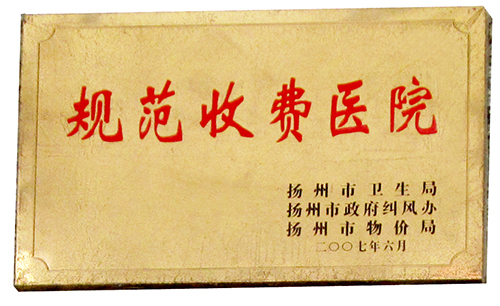 规范收费医院
扬州市卫生局
扬州市政府纠风办
扬州市物价局
二〇〇七年六月